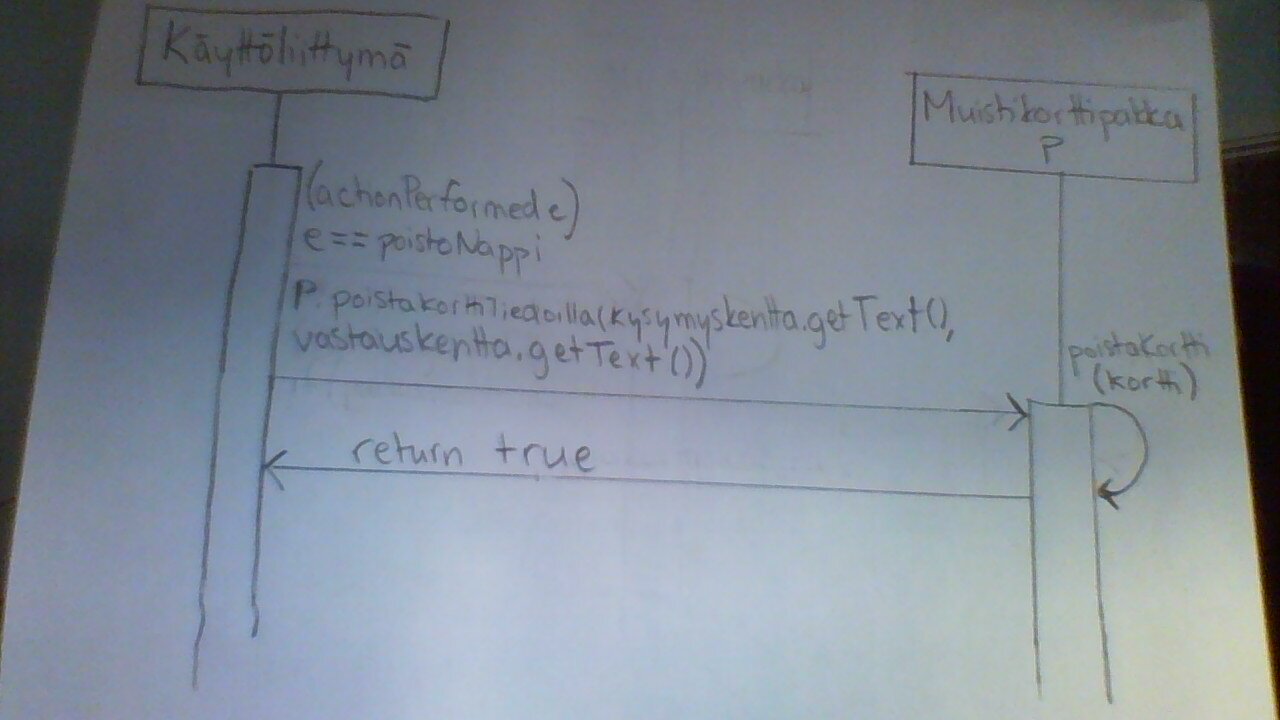 Käyttöliittymä
Muistikorttipakka
P
(actionPerformed e)
e == poistoNappi
P.poistaKorttiTiedoilla(kysymyskentta.getText(),
vastauskentta.getText())
poistaKortti
(kortti)
return true